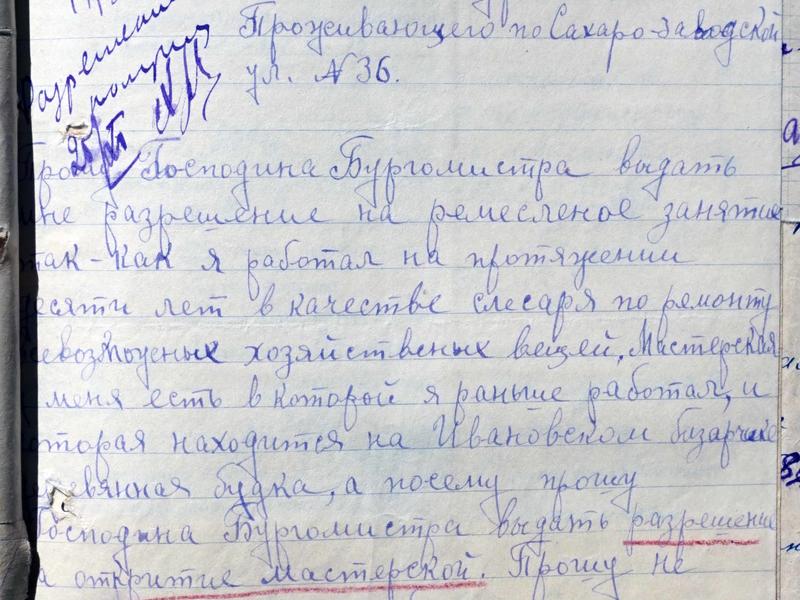 Разрешен
Проживающего по Сахаро-заводской
ул. N 36.
Прошу Господина Бургомистра выдать
мне разрешение на ремесленое занятие
так-как я работал на протяжении
есяти лет в качестве слесаря по ремонту
севозможных хозяйственых вещей. Мастерская
меня есть в которой я раньше работал, и
оторая находится на Ивановском базарчике
ревянная будка, а посему прошу
Господина Бургомистра выдать разрешение
а открытие мастерской. Прошу не